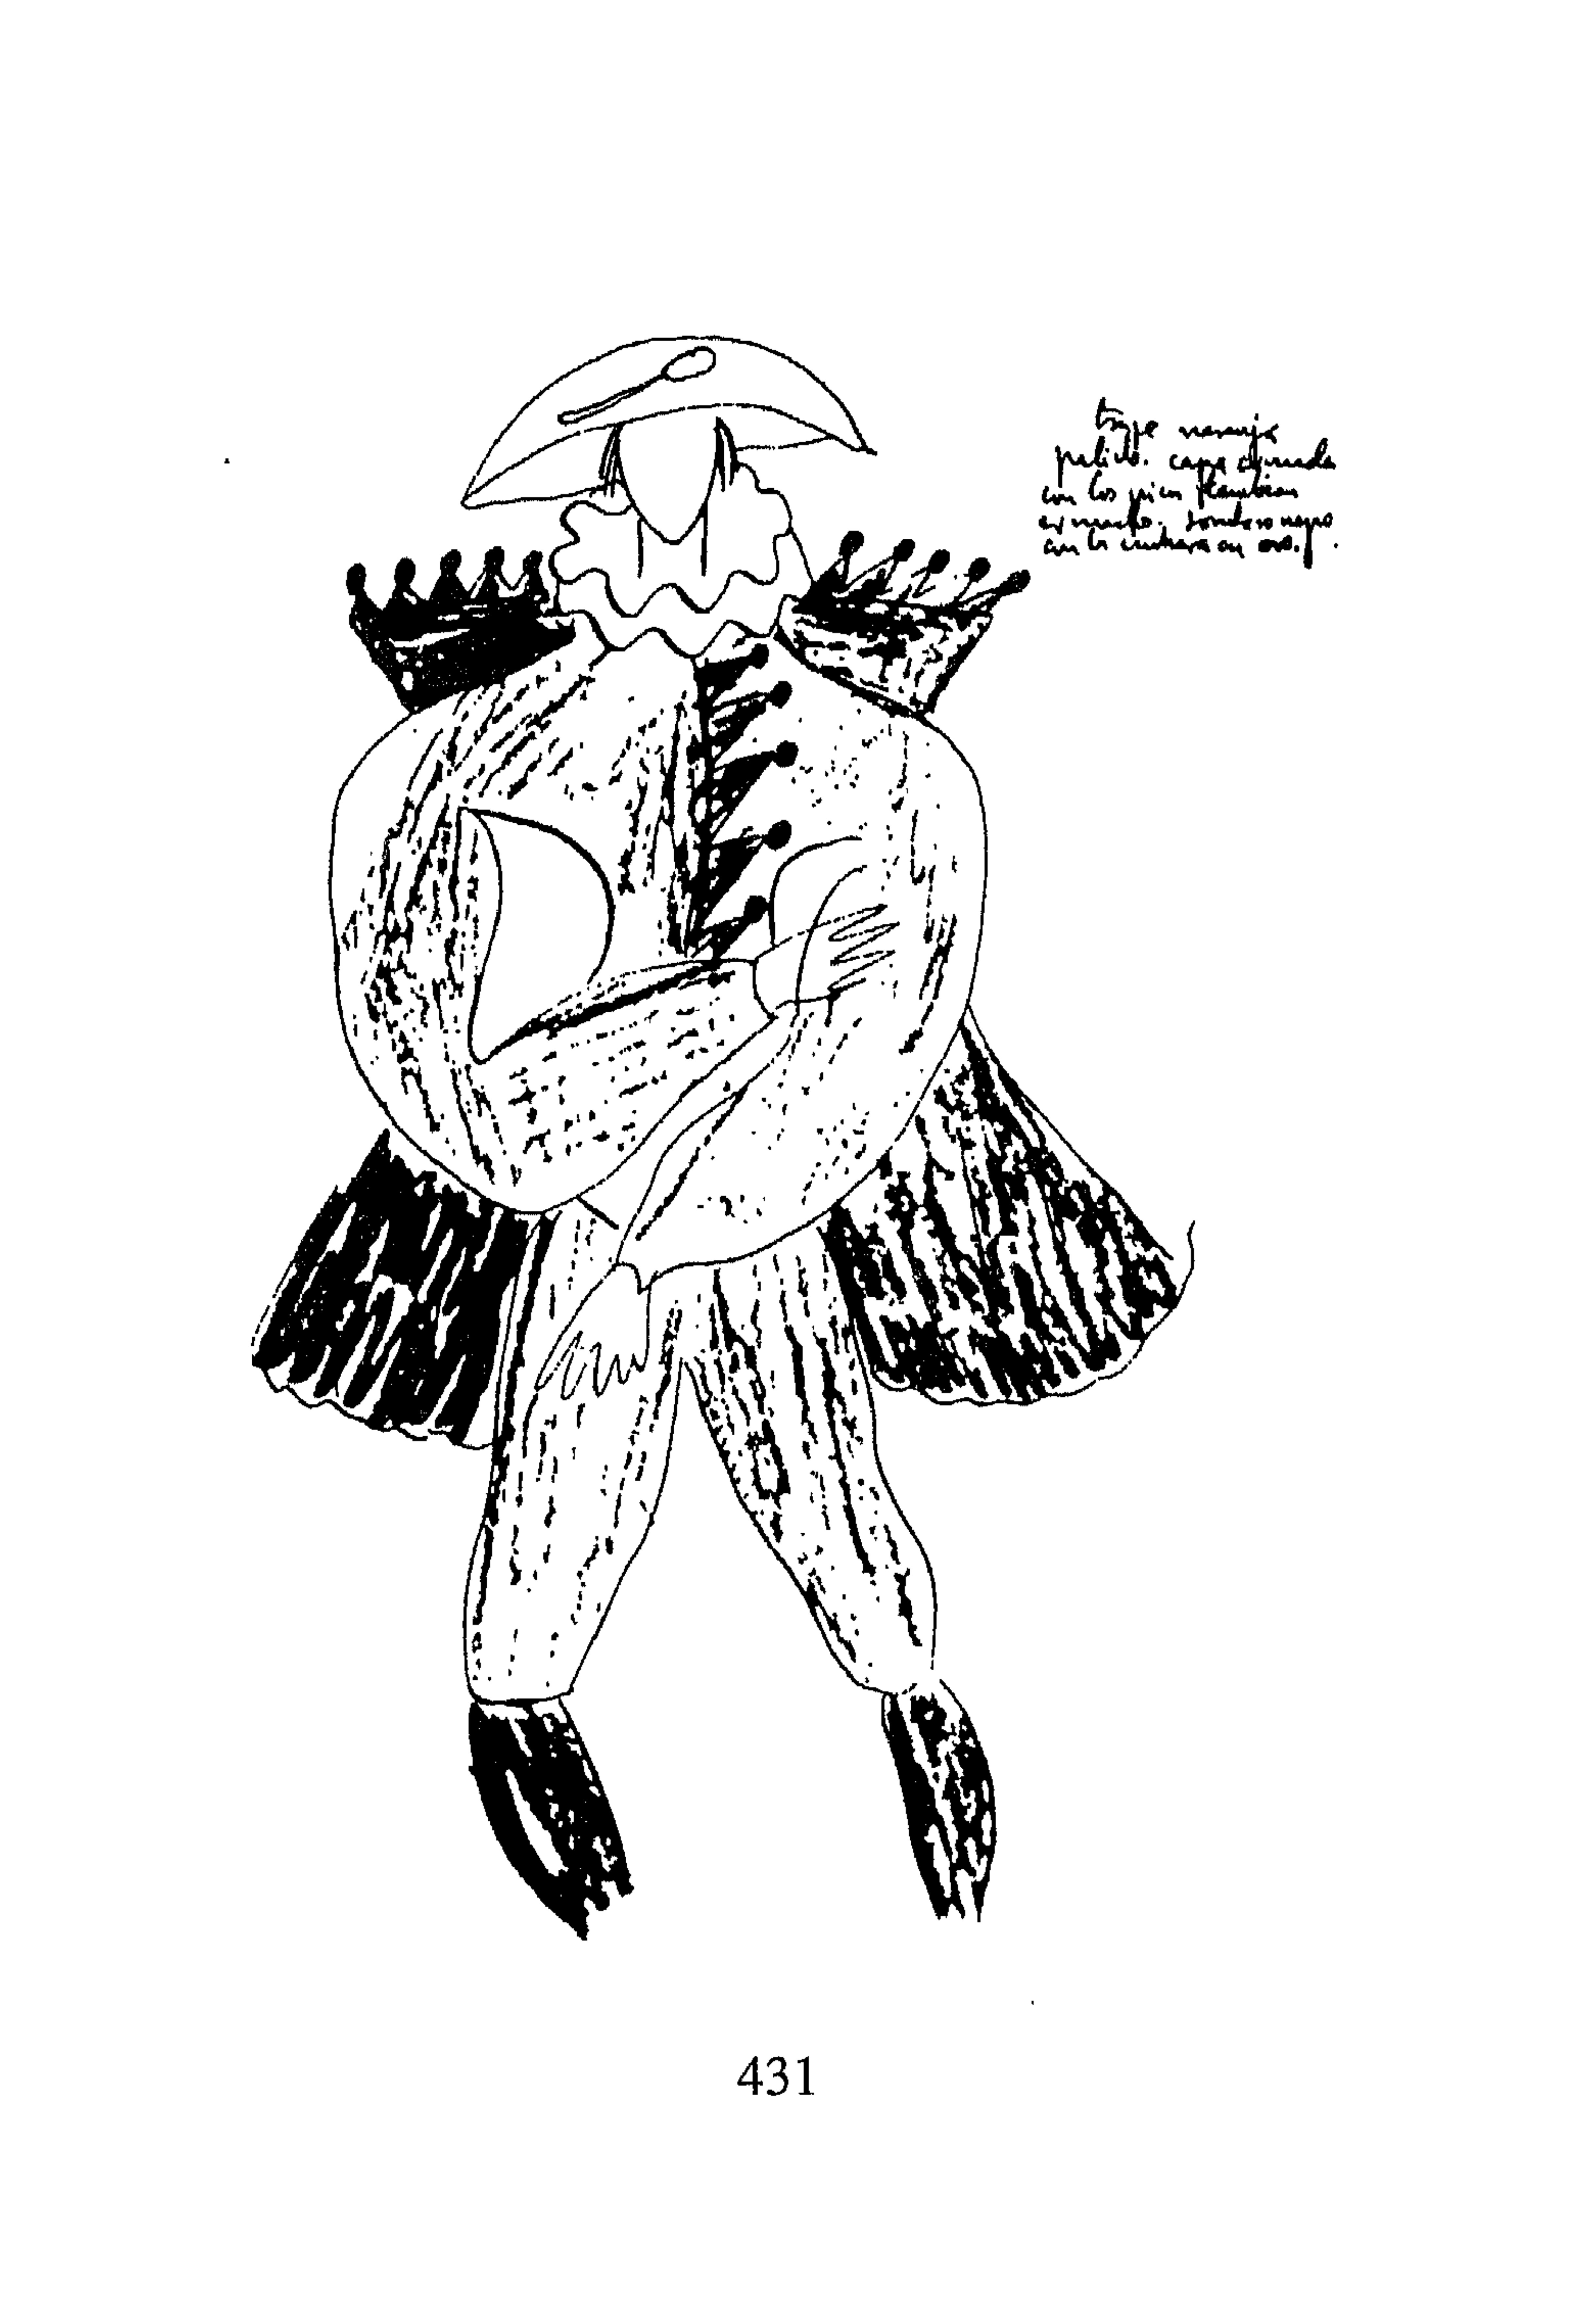 traje naranja
palido. capa
con los picos tambien
sombrero negro
con la cuchara en oro.
431